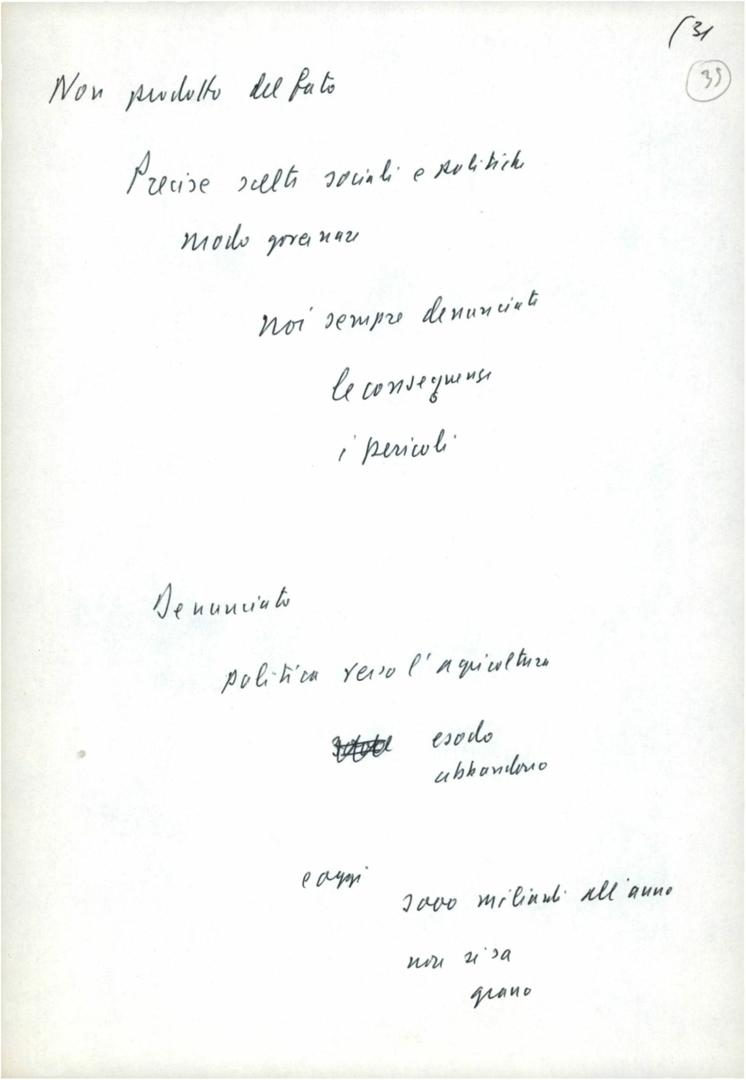 (31
35
Non prodotto del fato
Precise scelte sociali e politiche
modo governare
noi sempre denunciato
le conseguenze
i pericoli
Denunciato
politica verso l'agricoltura
esodo
abbandono
e oggi
3000 miliardi all'anno
non si sa
grano